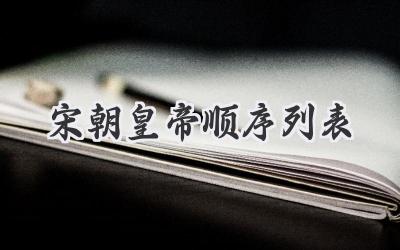 宋朝皇帝顺序列表